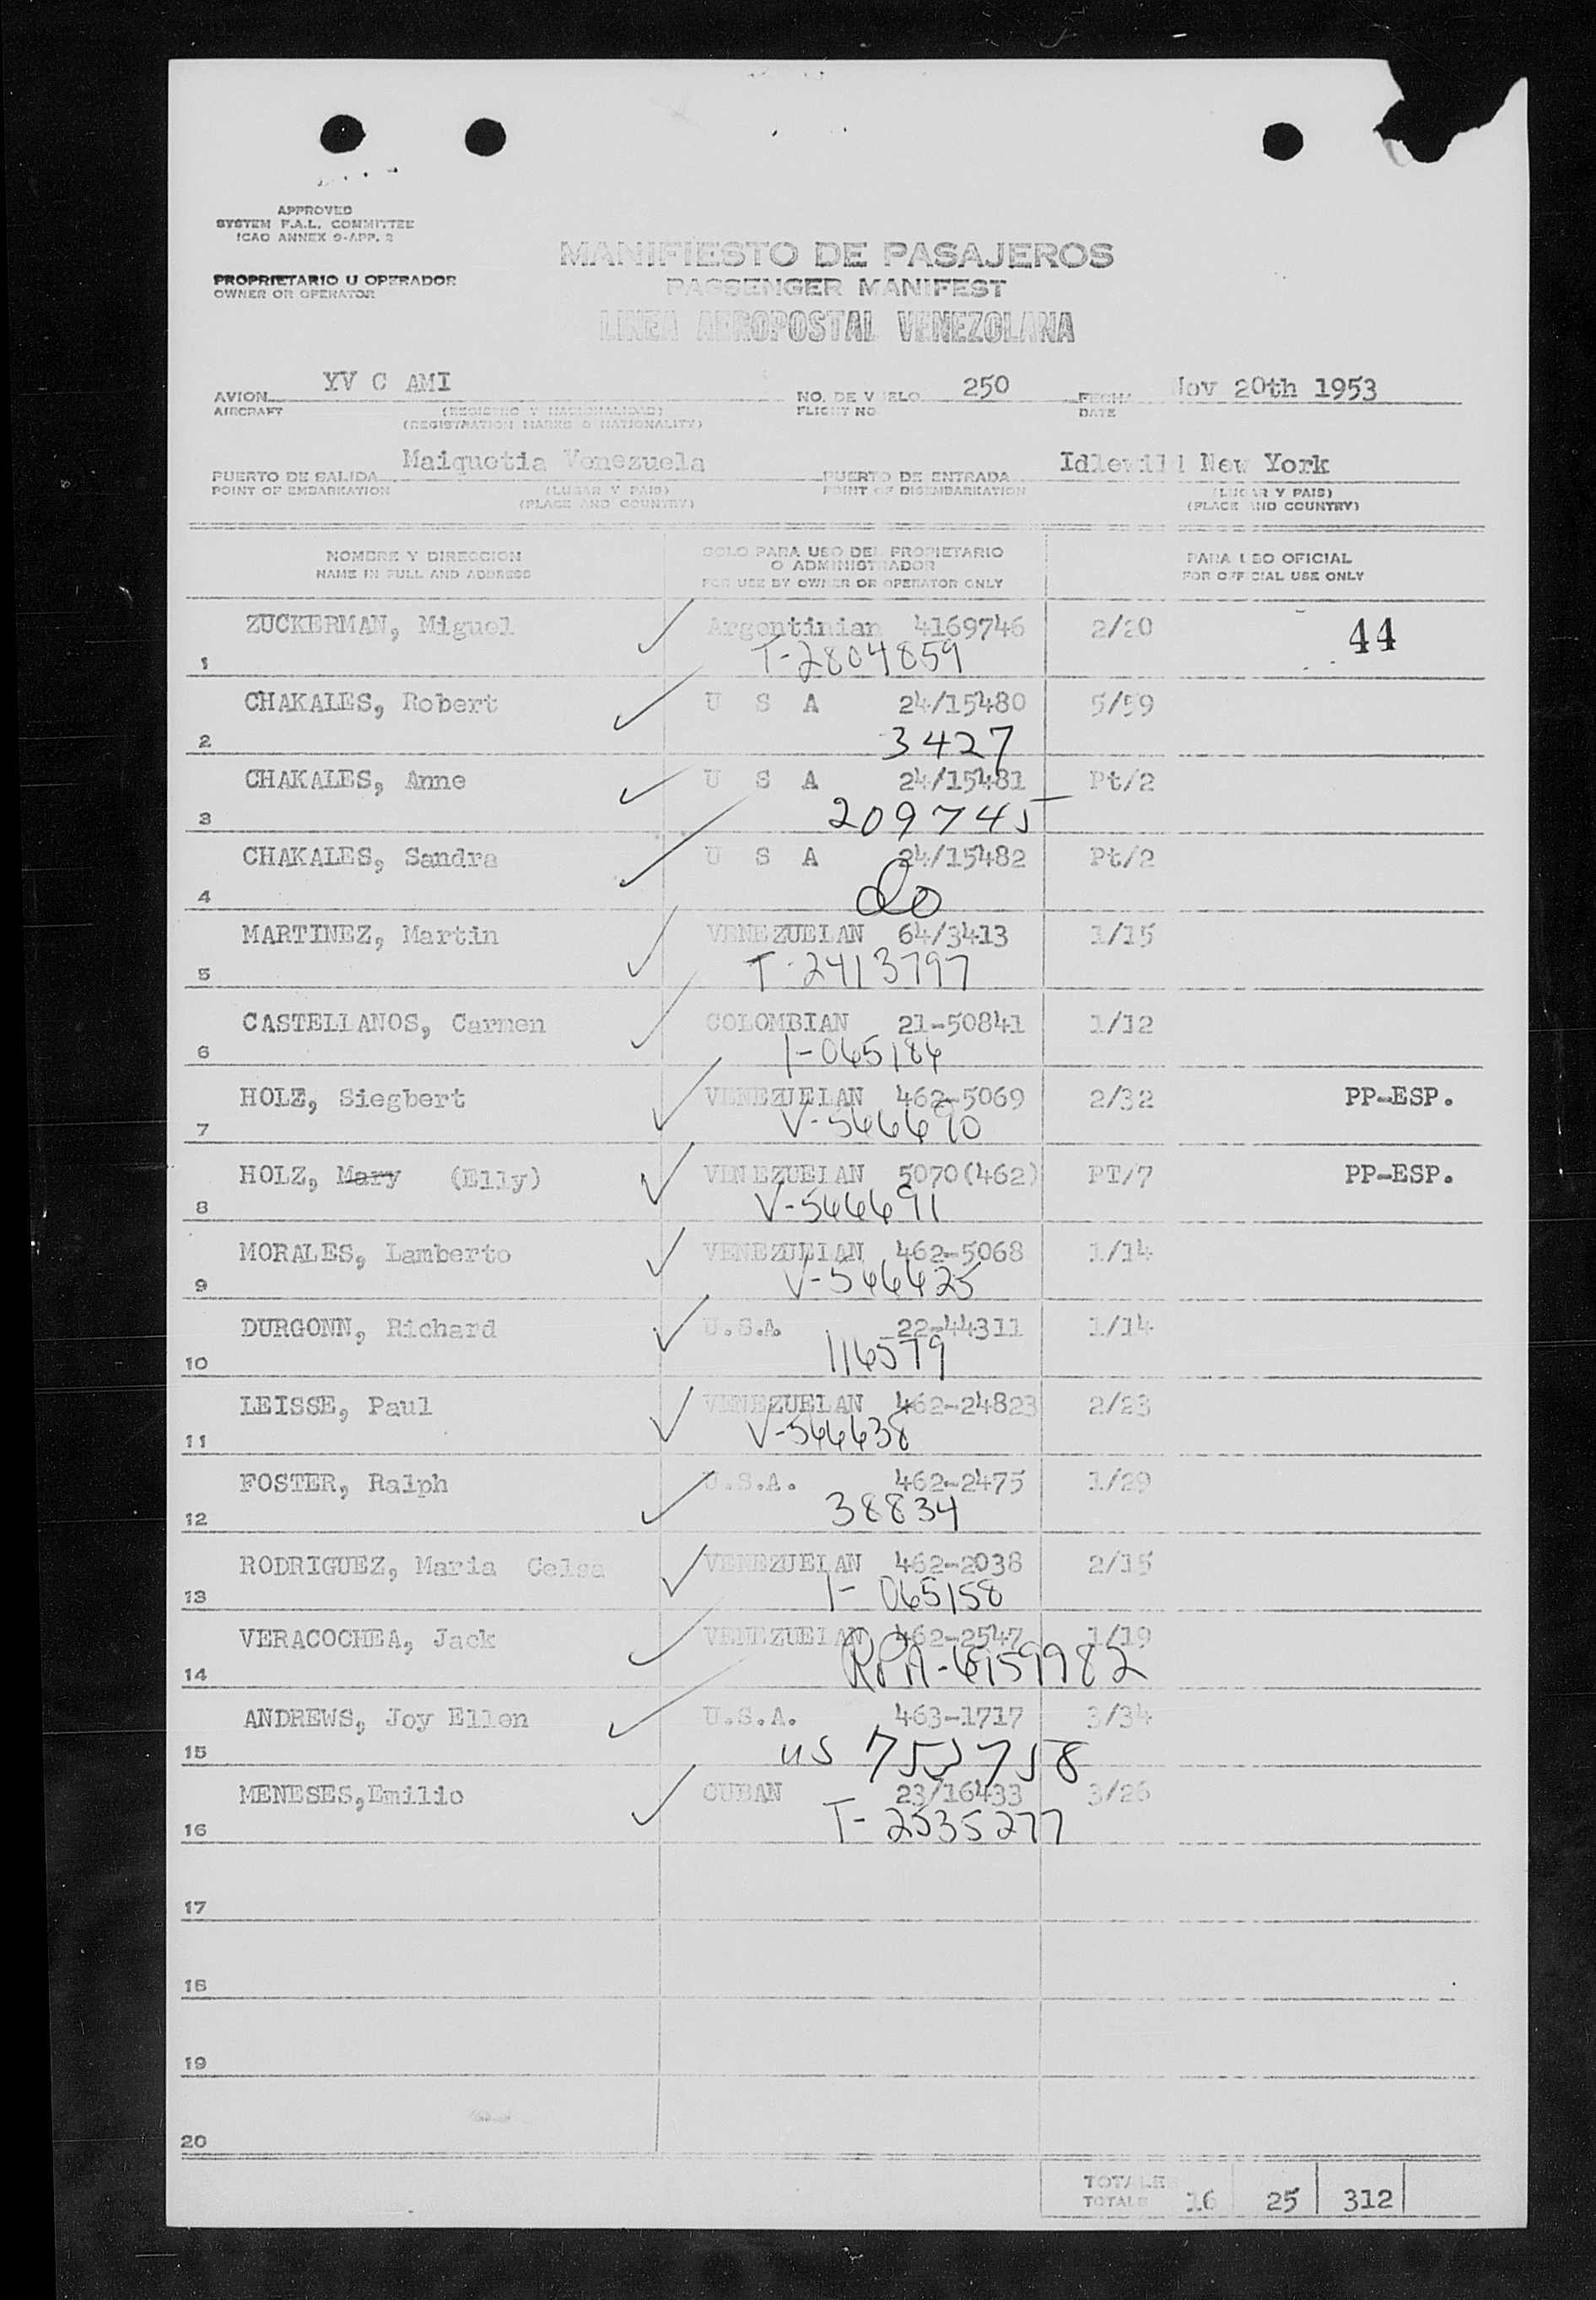 APPROVED
SYSTEM F.A.L. COMMITTEE
ICAO ANNEX 9-APP. 2
MANIFIESTO DE PASAJEROS
PROPRIETARIO U OPERADOR
OWNER OR OPERATOR
PASSENGER MANIFEST
LINEA AEROPOSTAL VENEZOLANA
AVION YV C AMI NO. DE VUELO 250 FECHA Nov 20th 1953
AIRCRAFT (REGISTRO Y NACIONALIDAD) FLIGHT NO DATE
(REGISTRATION MARKS & NATIONALITY)
PUERTO DE SALIDA Maiquetia Venezuela PUERTO DE ENTRADA Idlewild New York
POINT OF EMBARKATION (LUGAR Y PAIS) POINT OF DISEMBARKATION (LUGAR Y PAIS)
(PLACE AND COUNTRY) (PLACE AND COUNTRY)
NOMBRE Y DIRECCION SOLO PARA USO DEL PROPIETARIO PARA USO OFICIAL
O ADMINISTRADOR
NAME IN FULL AND ADDRESS FOR USE BY OWNER OR OPERATOR ONLY FOR OFFICIAL USE ONLY
ZUCKERMAN, Miguel Argentinian 4169746 2/20 44
1 T-2804859
CHAKALES, Robert U S A 24/15480 5/59
2 3427
CHAKALES, Anne U S A 24/15481 Pt/2
3 209745
CHAKALES, Sandra U S A 24/15482 Pt/2
4 do
MARTINEZ, Martin VENEZUELAN 64/3413 1/15
5 T-2413797
CASTELLANOS, Carmen COLOMBIAN 21-50841 1/12
6 1-065186
HOLZ, Siegbert VENEZUELAN 462-5069 2/32 PP-ESP.
7 V-566690
HOLZ, Mary (Elly) VENEZUELAN 5070(462) PT/7 PP-ESP.
8 V-566691
MORALES, Lamberto VENEZUELAN 462-5068 1/14
9 V-566625
DURGONN, Richard U.S.A. 22-44311 1/14
10 116579
LEISSE, Paul VENEZUELAN 462-24823 2/23
11 V-566638
FOSTER, Ralph U.S.A. 462-2475 1/29
12 38834
RODRIGUEZ, Maria Celsa VENEZUELAN 462-2038 2/15
13 1-065158
VERACOCHEA, Jack VENEZUELAN 462-2547 1/19
14 RPA-6159982
ANDREWS, Joy Ellen U.S.A. 463-1717 3/34
15 US 753758
MENESES,Emilio CUBAN 23/16433 3/26
16 T-2535277
17
18
19
20
TOTALES
TOTALS 16 25 312